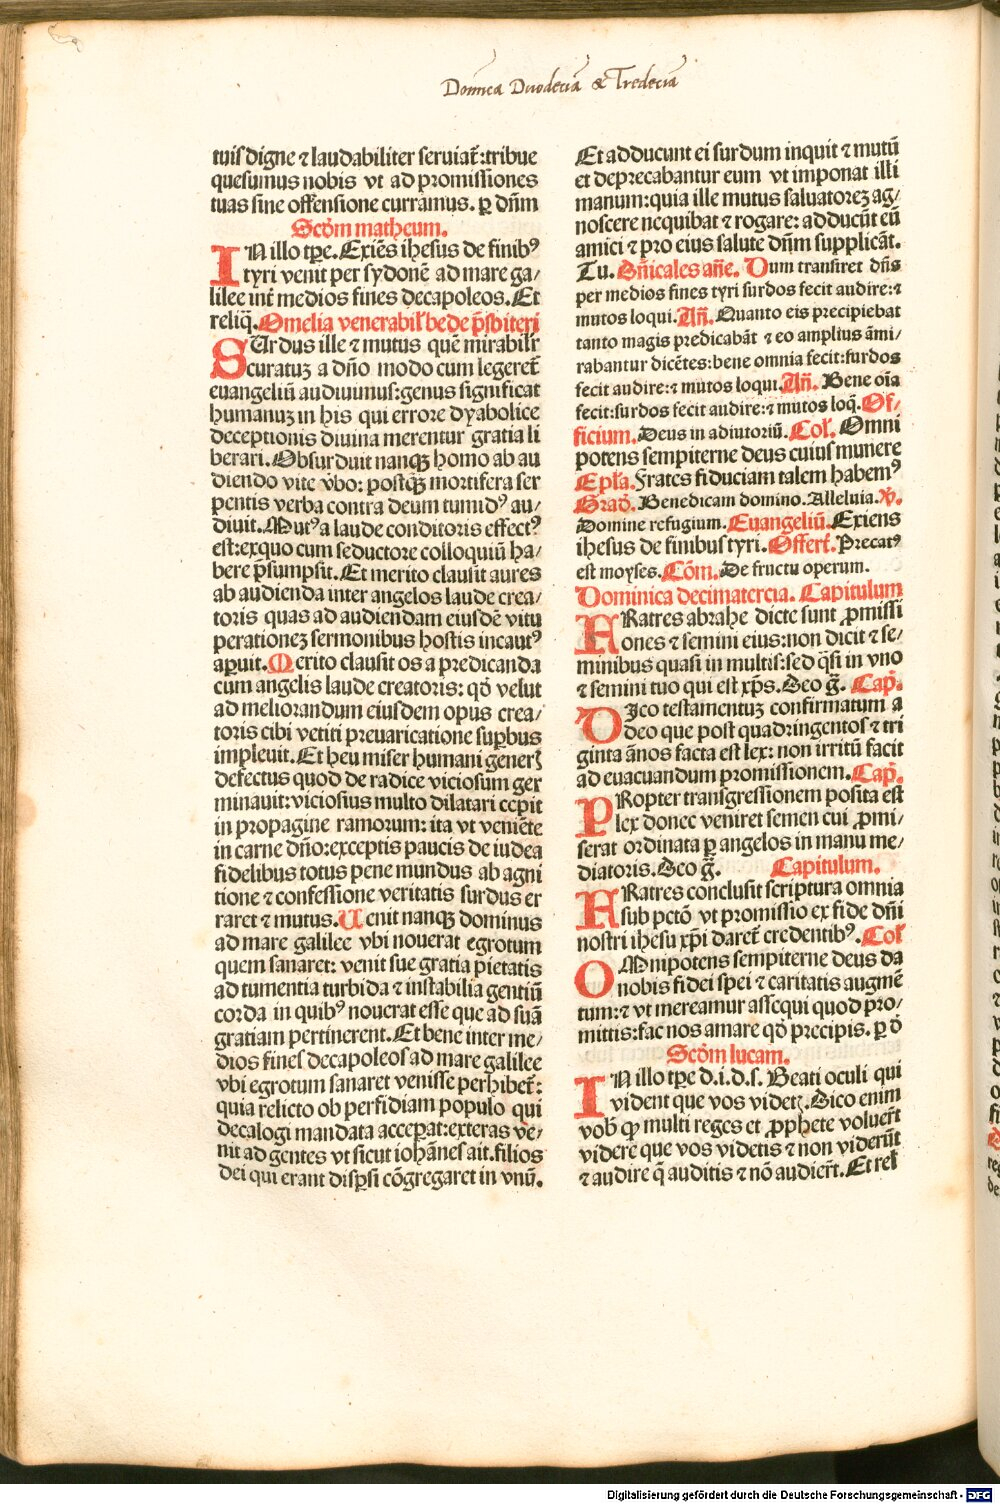 Dom̄ica Duodeciā & Tredeciā
tuis digne ⁊ laudabiliter seruiat̄:tribue
quesumus nobis vt ad promissiones
tuas sine offensione curramus. ꝑ dn̄m
Scd̄m matheum.
IN illo tp̄e. Exiēs ihesus de finibꝰ
tyri venit per sydonē ad mare ga/
lilee int̄ medios fines decapoleos. Et
reliq̄. Omelia venerabil̄ bede p̄sbiteri
SUrdus ille ⁊ mutus quē mirabilr̄
curatuꝫ a dn̄o modo cum legeret̄
euangeliū audiuimus:genus significat
humanuꝫ in his qui errore dyabolice
deceptionis diuina merentur gratia li
berari. Obsurduit nanqꝫ homo ab au
diendo vite v̄bo: postqꝫ mortifera ser
pentis verba contra deum tumidꝰ au/
diuit. Mutꝰ a laude conditoris effectꝰ
est:exquo cum seductore colloquiū ha/
bere p̄sumpsit. Et merito clausit aures
ab audienda inter angelos laude crea/
toris quas ad audiendam eiusdē vitu
perationeꝫ sermonibus hostis incautꝰ
aꝑuit. Merito clausit os a predicanda
cum angelis laude creatoris: qd̄ velut
ad meliorandum eiusdem opus crea/
toris cibi vetiti preuaricatione suꝑbus
impleuit. Et heu miser humani generꝭ
defectus quod de radice viciosum ger
minauit:viciosius multo dilatari cepit
in propagine ramorum: ita vt veniēte
in carne dn̄o:exceptis paucis de iudea
fidelibus totus pene mundus ab agni
tione ⁊ confessione veritatis surdus er
raret ⁊ mutus. Uenit nanqꝫ dominus
ad mare galilee vbi nouerat egrotum
quem sanaret: venit sue gratia pietatis
ad tumentia turbida ⁊ instabilia gentiū
corda in quibꝰ nouerat esse que ad suā
gratiam pertinerent. Et bene inter me/
dios fines decapoleos ad mare galilee
vbi egrotum sanaret venisse perhibet̄:
quia relicto ob perfidiam populo qui
decalogi mandata acceperat:exteras ve/
nit ad gentes vt sicut iohānes ait. filios
dei qui erant disꝑsi cōgregaret in vnū.
Et adducunt ei surdum inquit ⁊ mutū
et deprecabantur eum vt imponat illi
manum:quia ille mutus saluatoreꝫ ag/
noscere nequibat ⁊ rogare: adducūt eū
amici ⁊ pro eius salute dn̄m supplicāt.
Tu. Bn̄icales an̄e. Dum transiret dn̄s
per medios fines tyri surdos fecit audire:⁊
mutos loqui. An̄. Quanto eis precipiebat
tanto magis predicabāt ⁊ eo amplius āmi/
rabantur dicētes:bene omnia fecit:surdos
fecit audire:⁊ mutos loqui. An̄. Bene oīa
fecit:surdos fecit audire:⁊ mutos loq̄. Of/
ficium. Deus in adiutoriū. Col̄. Omni
potens sempiterne deus cuius munere
Epl̄a. Frates fiduciam talem habemꝰ
Grad̄. Benedicam domino. Alleluia. V̄.
Domine refugium. Euangeliū. Exiens
ihesus de finibus tyri. Offert̄. Precatꝰ
est moyses. Cōm. De fructu operum.
Dominica decimatercia. Capitulum
FRatres abrahe dicte sunt ꝓmissi
ones ⁊ semini eius:non dicit ⁊ se/
minibus quasi in multis:sed q̄si in vno
⁊ semini tuo qui est xp̄s. Deo gr̄. Cap̄.
DIco testamentuꝫ confirmatum a
deo que post quadringentos ⁊ tri
ginta ānos facta est lex: non irritū facit
ad euacuandum promissionem. Cap̄.
PRopter transgressionem posita est
lex donec veniret semen cui ꝓmi/
serat ordinata ꝑ angelos in manu me/
diatoris. Deo gr̄. Capitulum.
FRatres conclusit scriptura omnia
sub pctō vt promissio ex fide dn̄i
nostri ihesu xp̄i daret̄ credentibꝰ. Col̄
OMnipotens sempiterne deus da
nobis fidei spei ⁊ caritatis augmē
tum:⁊ vt mereamur assequi quod pro/
mittis:fac nos amare qd̄ precipis. ꝑ d̄
Scd̄m lucam.
IN illo tp̄e d.i.d.s. Beati oculi qui
vident que vos videtꝭ. Dico enim
vob̄ qꝫ multi reges et ꝓphete voluer̄t
videre que vos videtis ⁊ non viderūt
⁊ audire q̄ auditis ⁊ nō audier̄t. Et rel̄
Digitalisierung gefördert durch die Deutsche Forschungsgemeinschaft - DFG